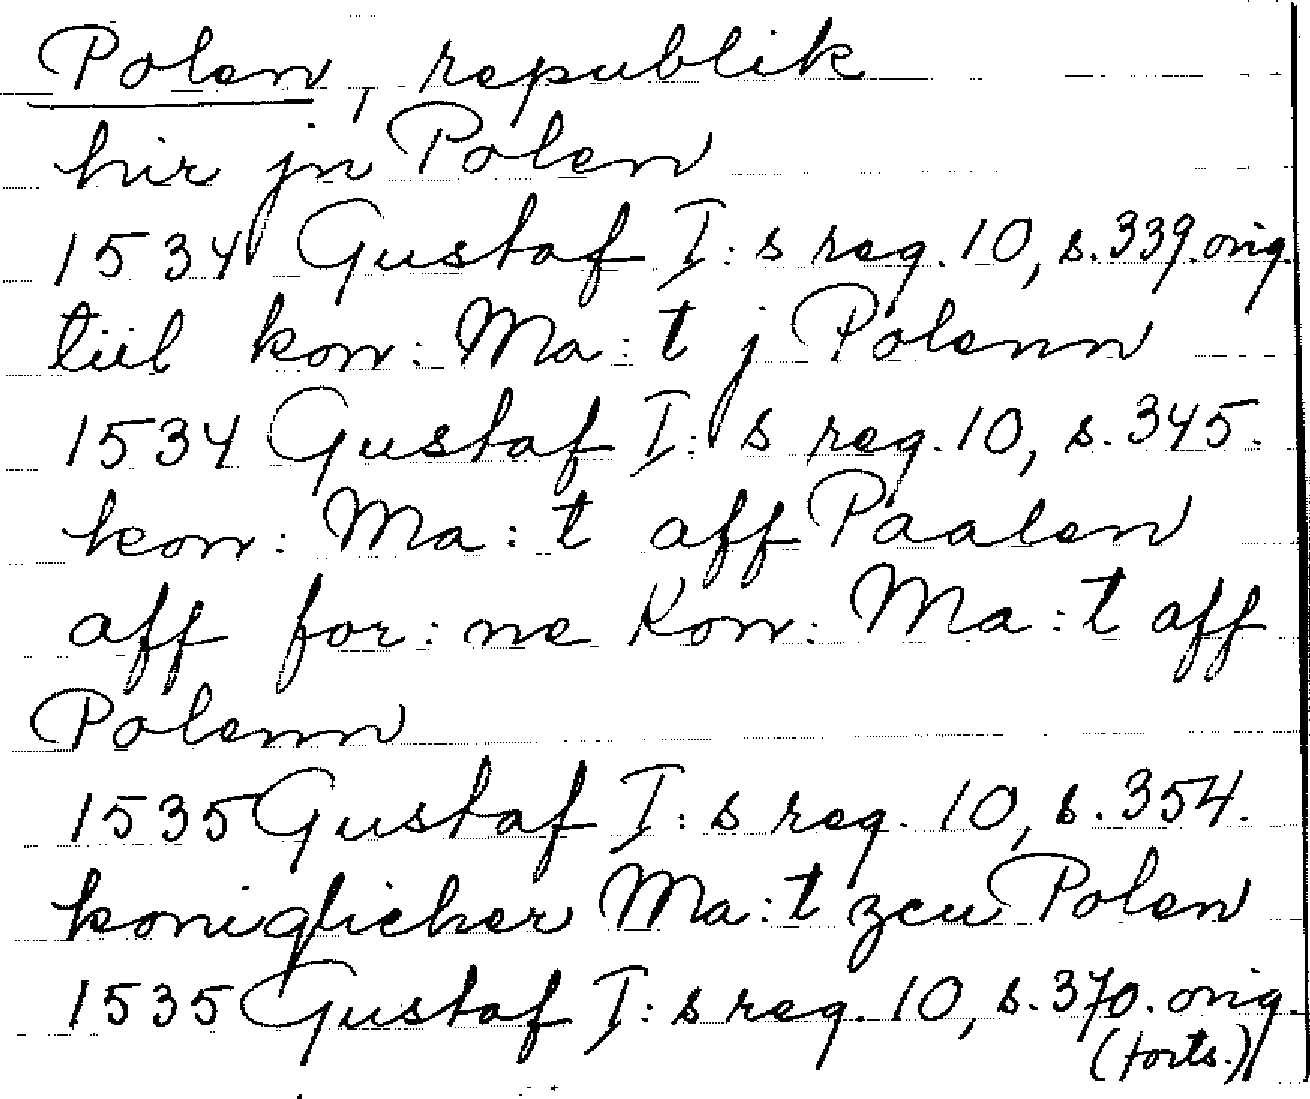 Polen, republik
hir jn Polen
1534 Gustaf I:s reg. 10, s. 339. orig.
tiil kon: Ma: t j Polenn
1534 Gustaf I:s reg. 10, s. 345.
kon: Ma: t aff Paalen
aff for: ne Kon: Ma: t aff
Polenn
1535 Gustaf I:s reg. 10, s. 354.
koniglicher Ma: t zcu Polen
1535 Gustaf I:s reg. 10, s. 370. orig.
(forts.)